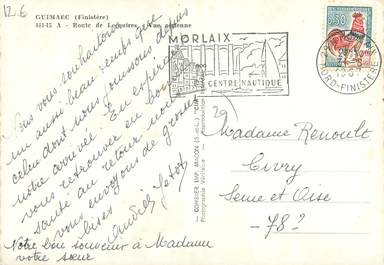 12.6
GUIMAEC (Finistère)
441-15 A - Route de Locquirec - Vue aérienne
MORLAIX
CENTRE NAUTIQUE
0,30
NORD-FINISTERE
Nous vous souhaitons
un aussi beau temps que
celui dont nous jouissons depuis
notre arrivée. En espérant
vous retrouver en bonne
santé au retour, nous
vous envoyons de grosses
bises
Notre bon souvenir à Madame
votre sœur
COMBIER IMP. MACON
Photographie Véritable
29
Madame Renoult
Civry
Seine et Oise
-78?